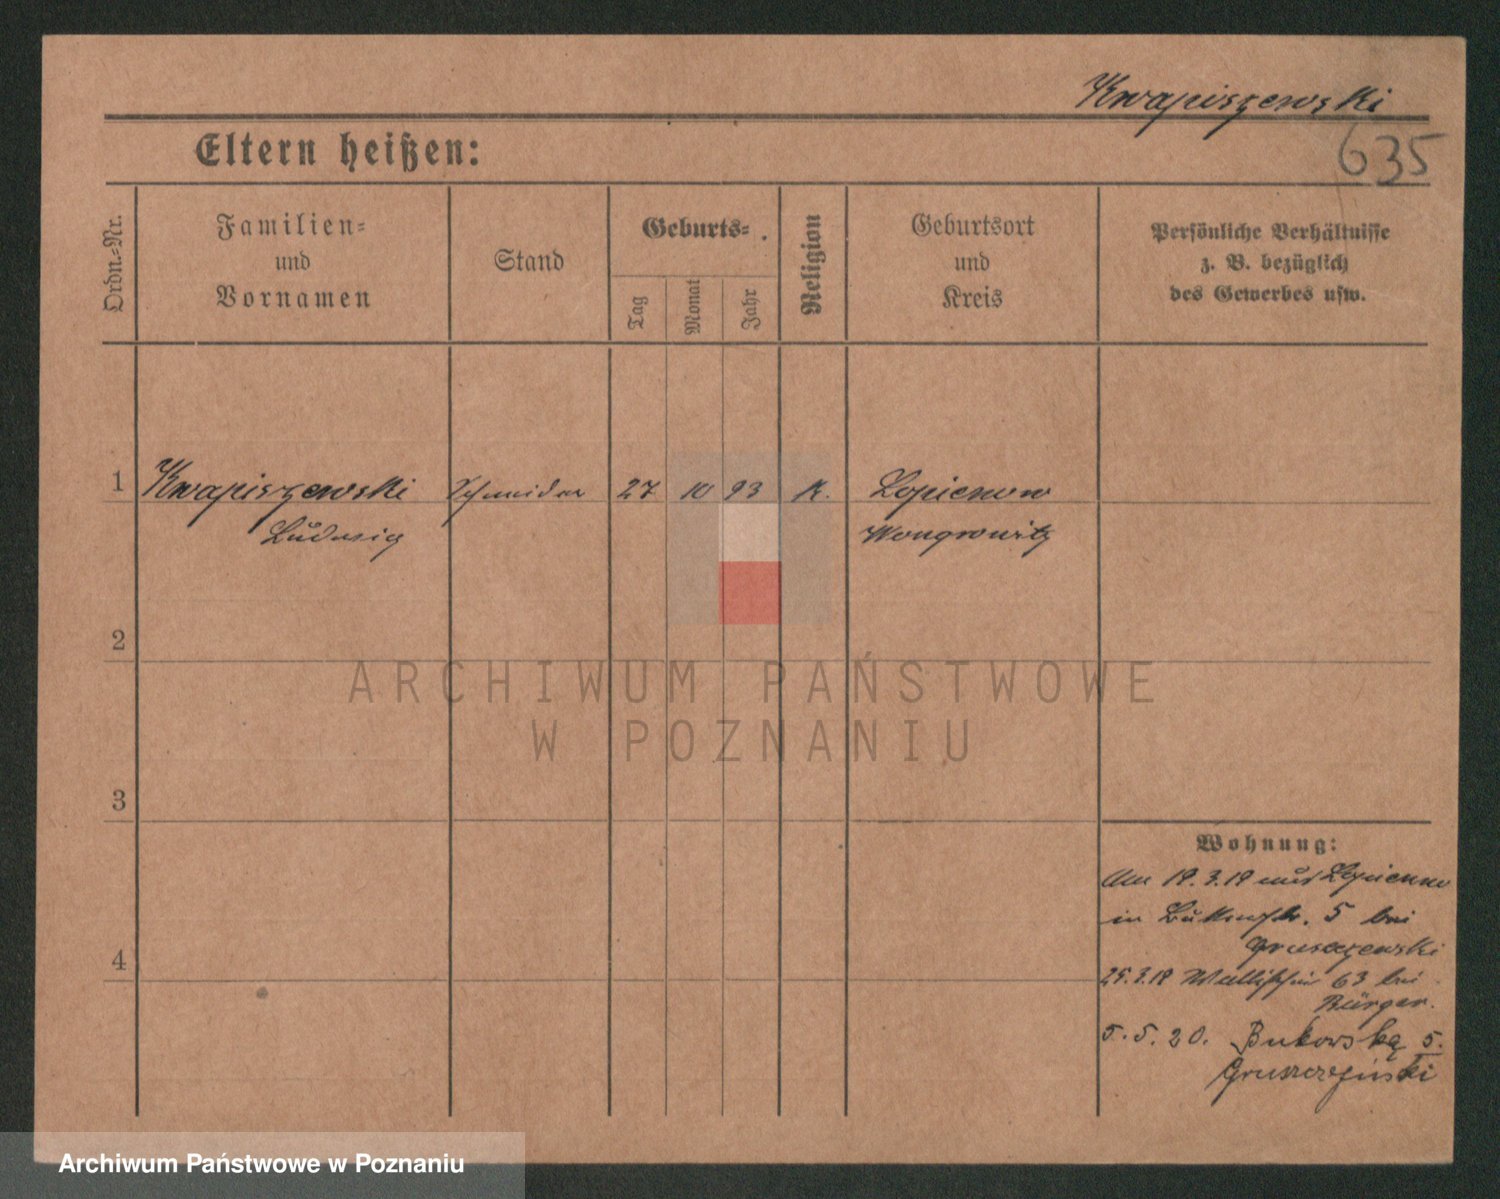 Kwapiszewski
635
Eltern heißen:
Ordn.-Nr.
Familien-
und
Vornamen
Stand
Geburts-
Tag
Monat
Jahr
Religion
Geburtsort
und
Kreis
Persönliche Verhältnisse
z. B. bezüglich
des Gewerbes usw.
1 Kwapiszewski Schneider 27 10 93 K. Lopienno
Ludwig Wongrowitz
2
ARCHIWUM PAŃSTWOWE
W POZNANIU
3
Wohnung:
Am 19.3.19 aus Lopienno
in 5 bei
Gruszczewski
25.3.19 Wallischei 63 bei
Bürger.
5.5.20. Bukowska 5.
Gruszczyński
4
Archiwum Państwowe w Poznaniu